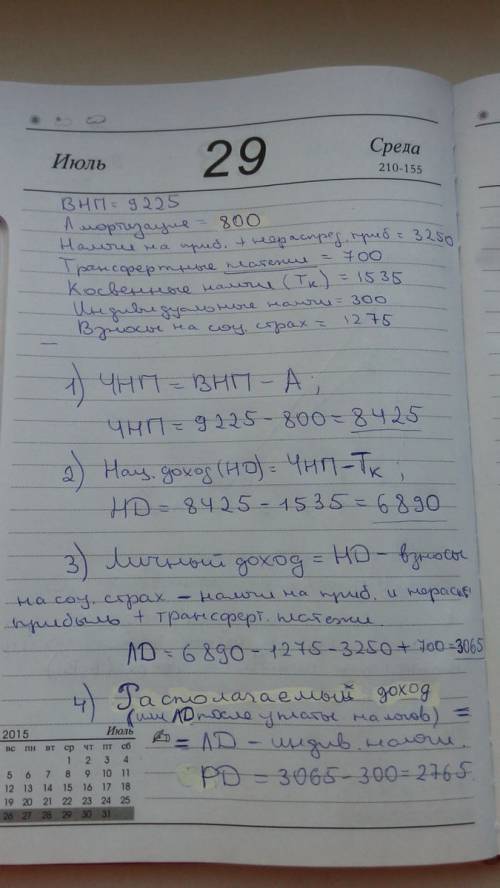 Июль 29 Среда
210-155
ВНП = 9225
Амортизация = 800
Налоги на приб. + нераспред. приб = 3250
Трансфертные платежи = 700
Косвенные налоги (Тк) = 1535
Индивидуальные налоги = 300
Взносы на соц. страх = 1275
1) ЧНП = ВНП – А ;
ЧНП = 9225 – 800 = 8425
2) Нац. доход (НД) = ЧНП – Тк ;
НД = 8425 – 1535 = 6890
3) Личный доход = НД – взносы
на соц. страх – налоги на приб. и нерасп.
прибыль + трансферт. платежи.
ЛД = 6890 – 1275 – 3250 + 700 = 3065
4) Располагаемый доход
(или ЛД после уплаты налогов) =
= ЛД – индив. налоги.
РД = 3065 – 300 = 2765
2015 Июль
вс пн вт ср чт пт сб
1 2 3 4
5 6 7 8 9 10 11
12 13 14 15 16 17 18
19 20 21 22 23 24 25
26 27 28 29 30 31